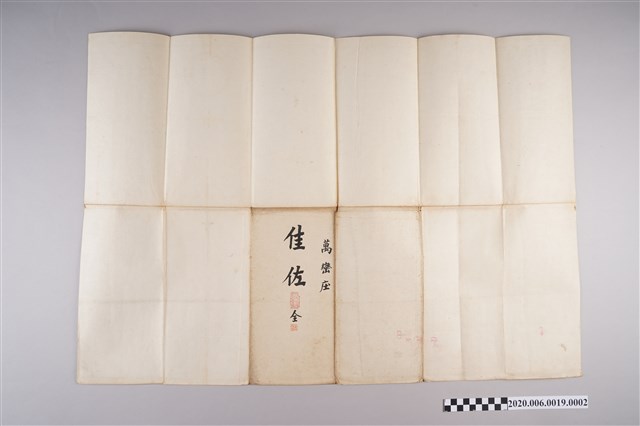 萬巒庄
佳佐
全
2020.006.0019.0002